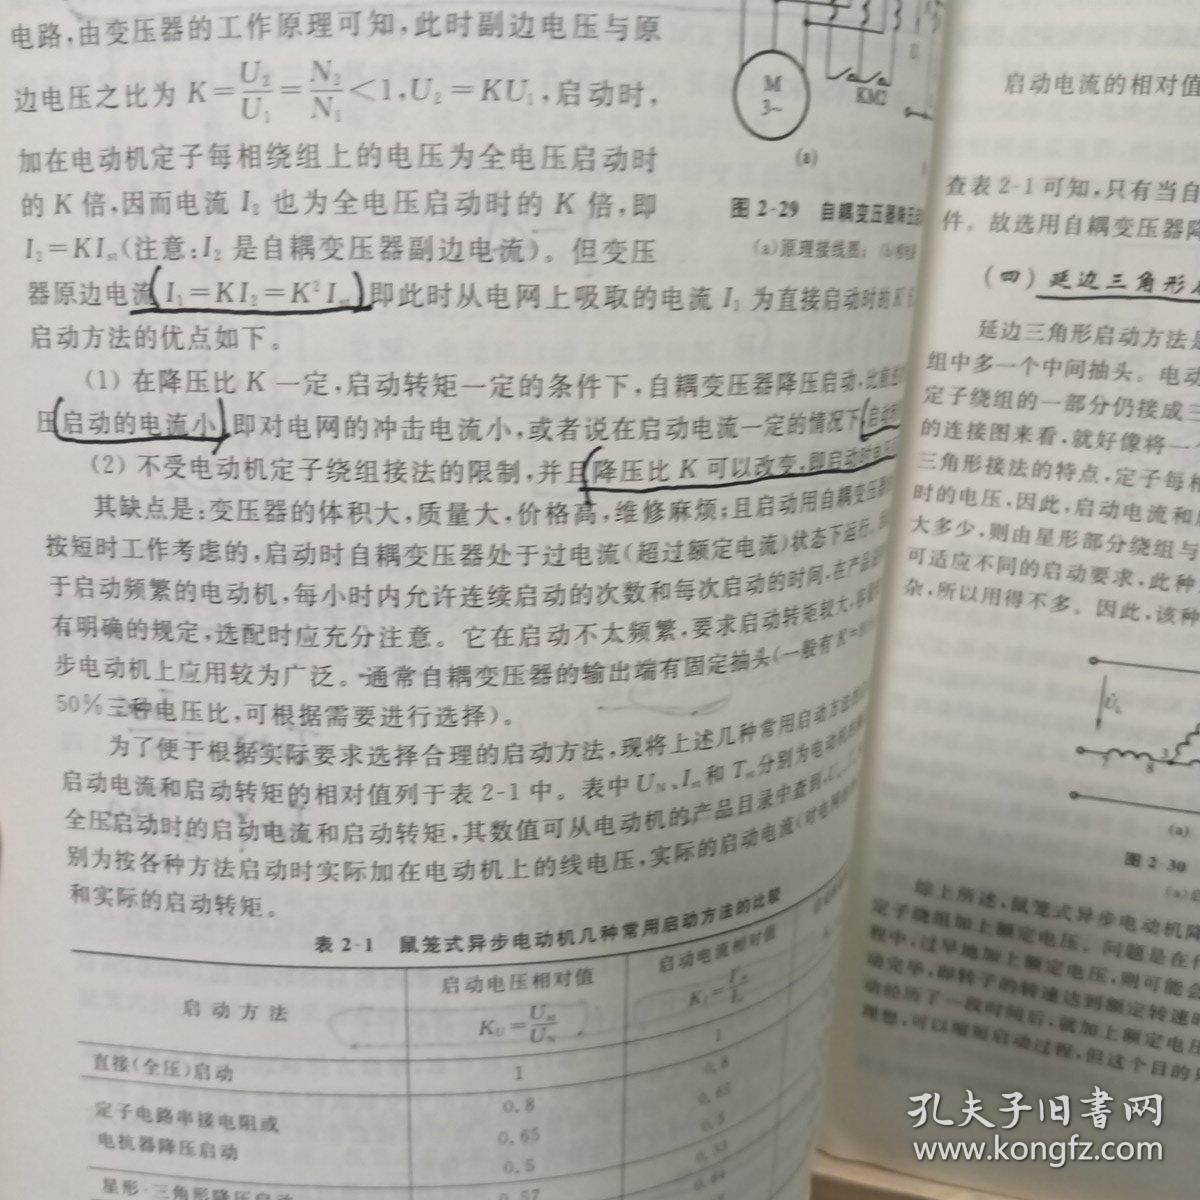 电路,由变压器的工作原理可知,此时副边电压与原
边电压之比为 K=U₂/U₁=N₂/N₁<1,U₂=KU₁,启动时,
加在电动机定子每相绕组上的电压为全电压启动时
的 K 倍,因而电流 I₂ 也为全电压启动时的 K 倍,即
I₂=KIst(注意:I₂ 是自耦变压器副边电流)。但变压
器原边电流 I₁=KI₂=K²Ist 即此时从电网上吸取的电流 I₁ 为直接启动时的 K²
启动方法的优点如下。
(1) 在降压比 K 一定,启动转矩一定的条件下,自耦变压器降压启动,比前述
压启动的电流小,即对电网的冲击电流小,或者说在启动电流一定的情况下,启动
(2) 不受电动机定子绕组接法的限制,并且降压比 K 可以改变,即启动时电压
其缺点是:变压器的体积大,质量大,价格高,维修麻烦;且启动用自耦变压器
按短时工作考虑的,启动时自耦变压器处于过电流(超过额定电流)状态下运行,
于启动频繁的电动机,每小时内允许连续启动的次数和每次启动的时间,在产品
有明确的规定,选配时应充分注意。它在启动不太频繁,要求启动转矩较大,
步电动机上应用较为广泛。通常自耦变压器的输出端有固定抽头(一般有 K=
50%三种电压比,可根据需要进行选择)。
为了便于根据实际要求选择合理的启动方法,现将上述几种常用启动方法
启动电流和启动转矩的相对值列于表 2-1 中。表中 UN、Ist 和 Tst 分别为电动机的
全压启动时的启动电流和启动转矩,其数值可从电动机的产品目录中查到
别为按各种方法启动时实际加在电动机上的线电压,实际的启动电流(对电网
和实际的启动转矩。
表 2-1 鼠笼式异步电动机几种常用启动方法的比较
启动方法
启动电压相对值
KU=Ust/UN
启动电流相对值
KI=I'st/Ist
直接(全压)启动 1 1
定子电路串接电阻或
电抗器降压启动
0.8 0.8
0.65 0.65
0.5 0.5
星形-三角形降压启动 0.57 0.33
0.64
M
3~
KM2
(a)
图 2-29 自耦变压器降压启
(a)原理接线图;(b)
启动电流的相对值
查表 2-1 可知,只有当自
件。故选用自耦变压器降
(四) 延边三角形
延边三角形启动方法是
组中多一个中间抽头。电动
定子绕组的一部分仍接成三
的连接图来看,就好像将一个
三角形接法的特点,定子每相
时的电压,因此,启动电流和
大多少,则由星形部分绕组与
可适应不同的启动要求,此种
杂,所以用得不多。因此,该种
(a)
图 2-30
综上所述,鼠笼式异步电动机降
定子绕组加上额定电压。问题是在什
程中,过早地加上额定电压,则可能会
动完毕,即转子的转速达到额定转速时
动经历了一段时间后,就加上额定电压
理想,可以缩短启动过程,但这个目的
孔夫子旧书网
www.kongfz.com